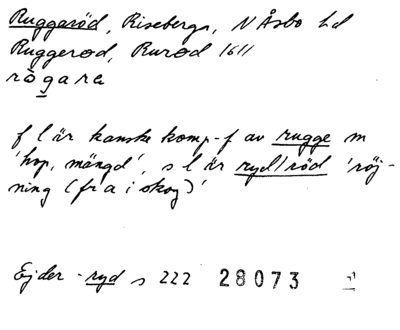 Ruggaröd, Riseberga, N Åsbo hd
Ruggerod, Rurod 1611
rögara
f l är kanske komp.-f av rugge m
'hop, mängd', s l är ryd/röd 'röj-
ning (fr a i skog)'
Ejder -ryd s 222 28073